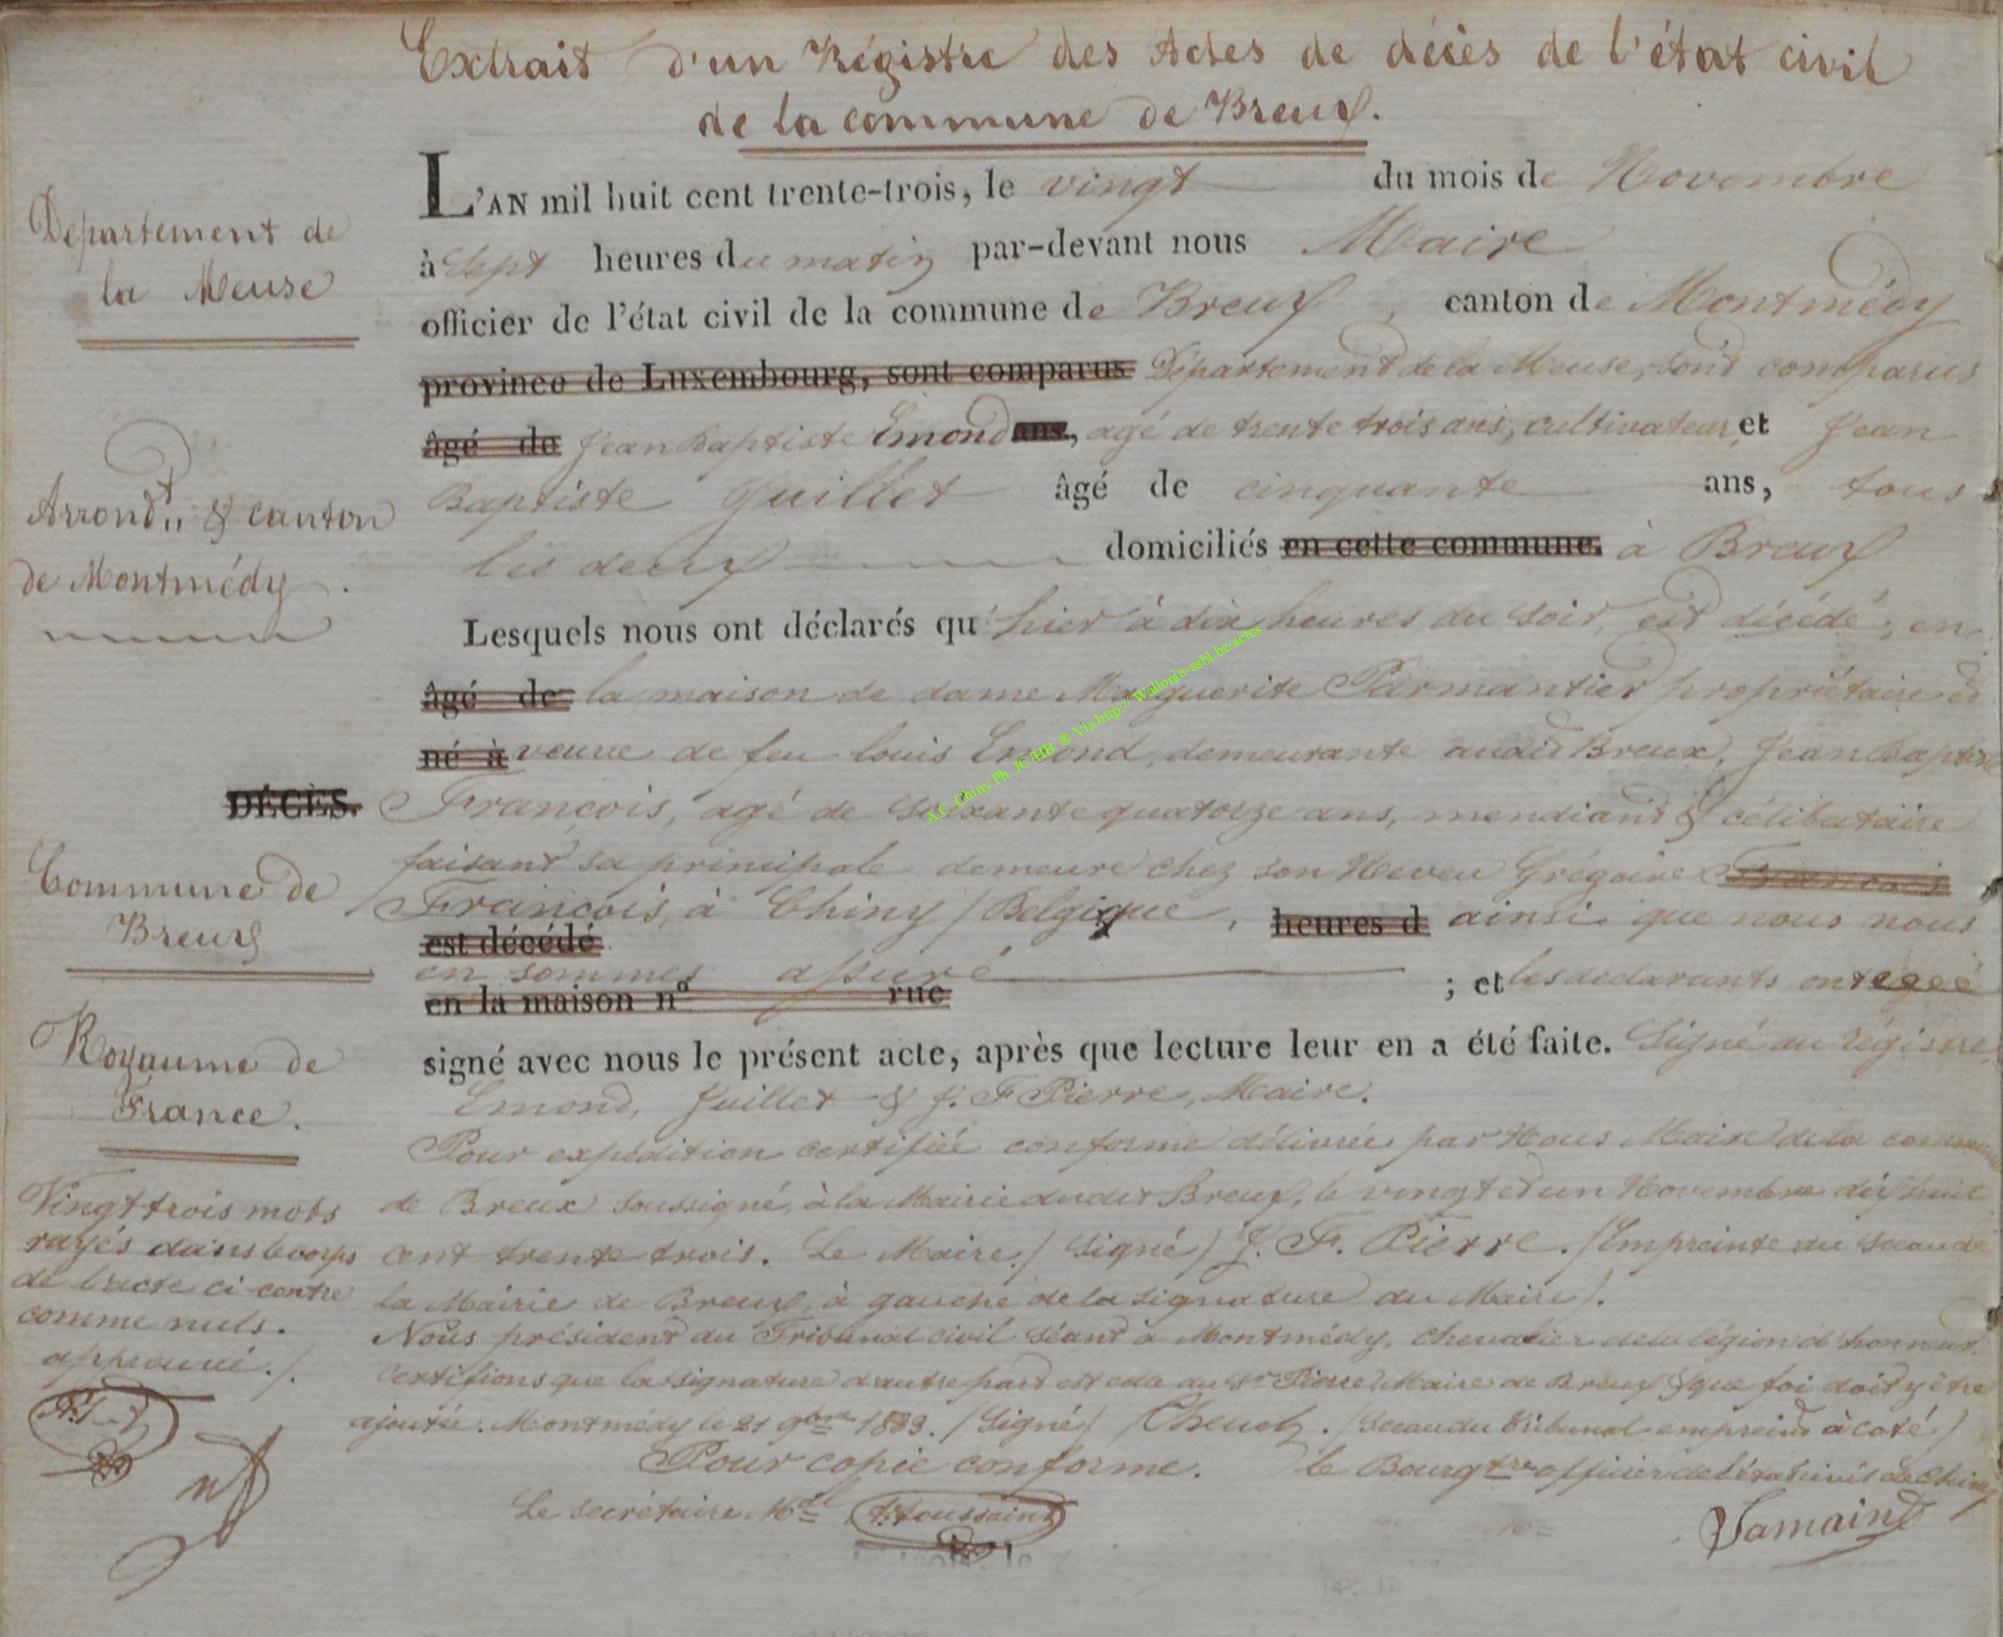 Extrait d'un Régistre des Actes de décès de l'état civil
de la commune de Breux.
Departement de
la Meuse
Arrond.t & canton
de Montmédy.
DÉCÈS.
Commune de
Breux
Royaume de
France.
Vingt trois mots
rayés dans le corps
de l'acte ci-contre
comme nuls.
approuvé./.
L'AN mil huit cent trente-trois, le vingt du mois de Novembre
à Sept heures du matin par-devant nous Maire
officier de l'état civil de la commune de Breux, canton de Montmédy
province de Luxembourg, sont comparus Département de la Meuse, sont comparus
âgé de Jean Baptiste Emond ans, agé de trente trois ans, cultivateur, et Jean
Baptiste Juillet âgé de cinquante ans, tous
les deux domiciliés en cette commune. à Breux
Lesquels nous ont déclarés qu'hier à dix heures du soir, est décédé, en
âgé de la maison de dame Marguerite Parmantier propriétaire et
né à veuve de feu Louis Emond, demeurante audit Breux, Jean Baptiste
François, agé de soixante quatorze ans, mendiant & célibataire
faisant sa principale demeure chez son Neveu Grégoire François
François, à Chiny / Belgique, heures d ainsi que nous nous
est décédé
en sommes assuré ; et les declarants ont
en la maison nº rue
signé avec nous le présent acte, après que lecture leur en a été faite. Signé au régistre
Emond, Juillet & J. F Pierre, Maire.
Pour expédition certifiée conforme délivrée par Nous Maire de la commune
de Breux soussigné, à la Mairie dudit Breux, le vingt et un Novembre dix huit
cent trente trois. Le Maire / Signé / J. F. Pierre. / Empreinte du sceau de
la Mairie de Breux, à gauche de la signature du Maire /.
Nous président du Tribunal civil séant à Montmédy, chevalier de la légion d'honneur,
certifions que la signature d'autre part est celle du Sr Pierre, Maire de Breux & que foi doit y être
ajoutée. Montmédy le 21 9bre 1833. / Signé / . / Sceau du tribunal empreint à coté /
Pour copie conforme. le Bourgtre officier de l'état civil de Chiny
Le secrétaire Toussaint
Jamain
A.C. Chiny Ph. JC/HB ® Via http:// Wallonia-asbl.be/actes